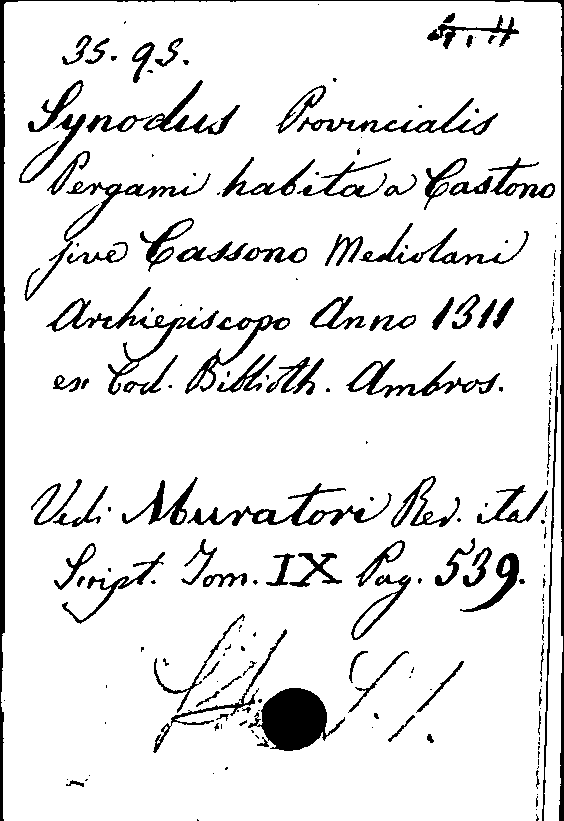 35. 9.5.
Synodus Provincialis
Pergami habita a Castono
sive Cassono Mediolani
Archiepiscopo Anno 1311
ex Cod. Biblioth. Ambros.
Vedi Muratori Rer. ital.
Script. Tom. IX Pag. 539.